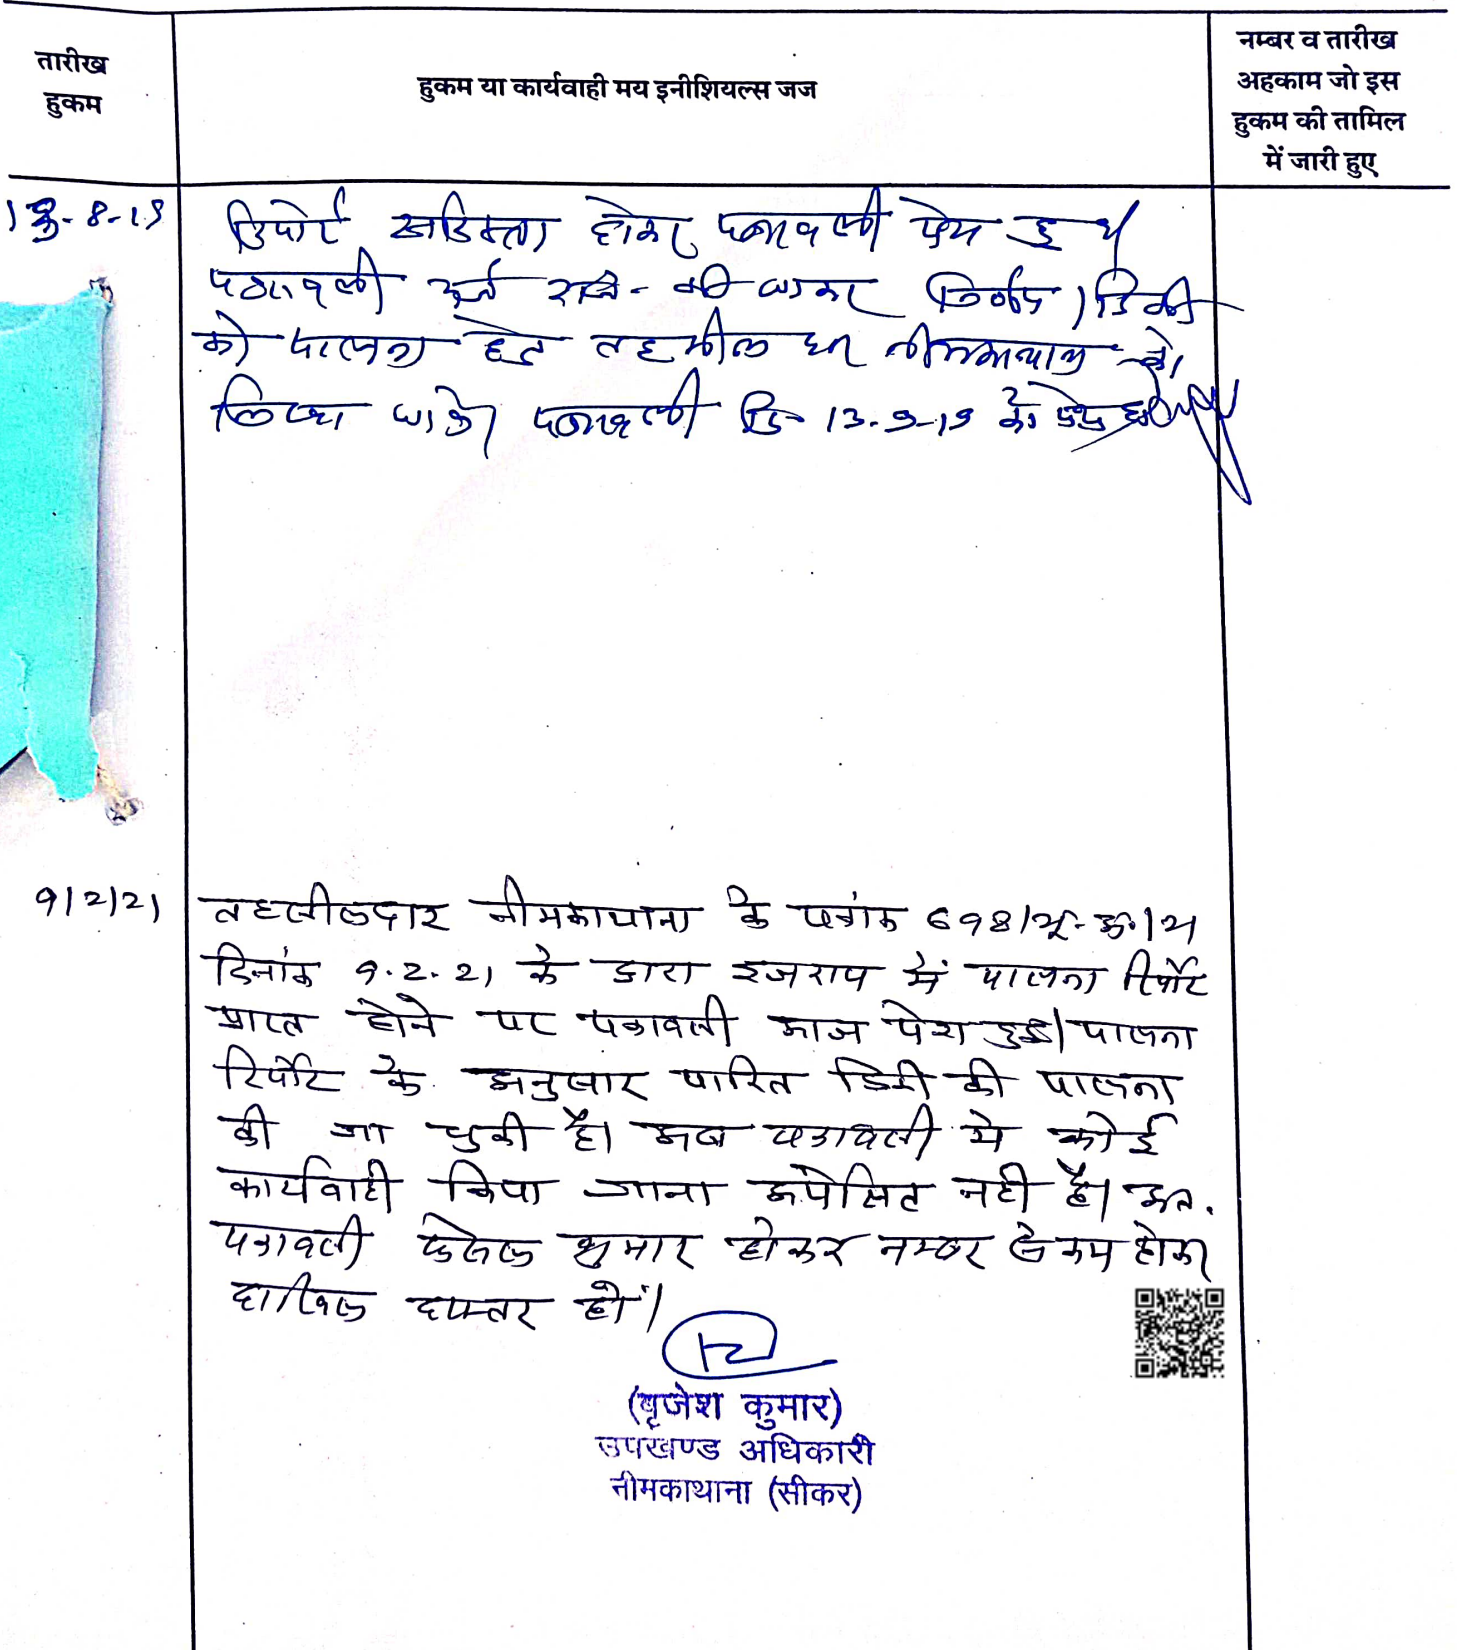 तारीख
हुकम
हुकम या कार्यवाही मय इनीशियल्स जज
नम्बर व तारीख
अहकाम जो इस
हुकम की तामिल
में जारी हुए
13-8-19
होकर पत्रावली पेश हुई
पत्रावली दर्ज रजि. की जाकर निर्णय / डिक्री
को पालना हेतु तहसीलदार नीमकाथाना को
लिखा जावे। पत्रावली दि. 13-9-19 को पेश हो
9/2/21
तहसीलदार नीमकाथाना के पत्रांक 698/भू-अ./21
दिनांक 9.2.21 के द्वारा इजराय में पालना रिपोर्ट
प्राप्त होने पर पत्रावली आज पेश हुई। पालना
रिपोर्ट के अनुसार पारित डिक्री की पालना
की जा चुकी है। अब पत्रावली मे कोई
कार्यवाही किया जाना अपेक्षित नही है। अत.
पत्रावली फैसल शुमार होकर नम्बर से कम होकर
दाखिल दफ्तर हो।
(बृजेश कुमार)
उपखण्ड अधिकारी
नीमकाथाना (सीकर)